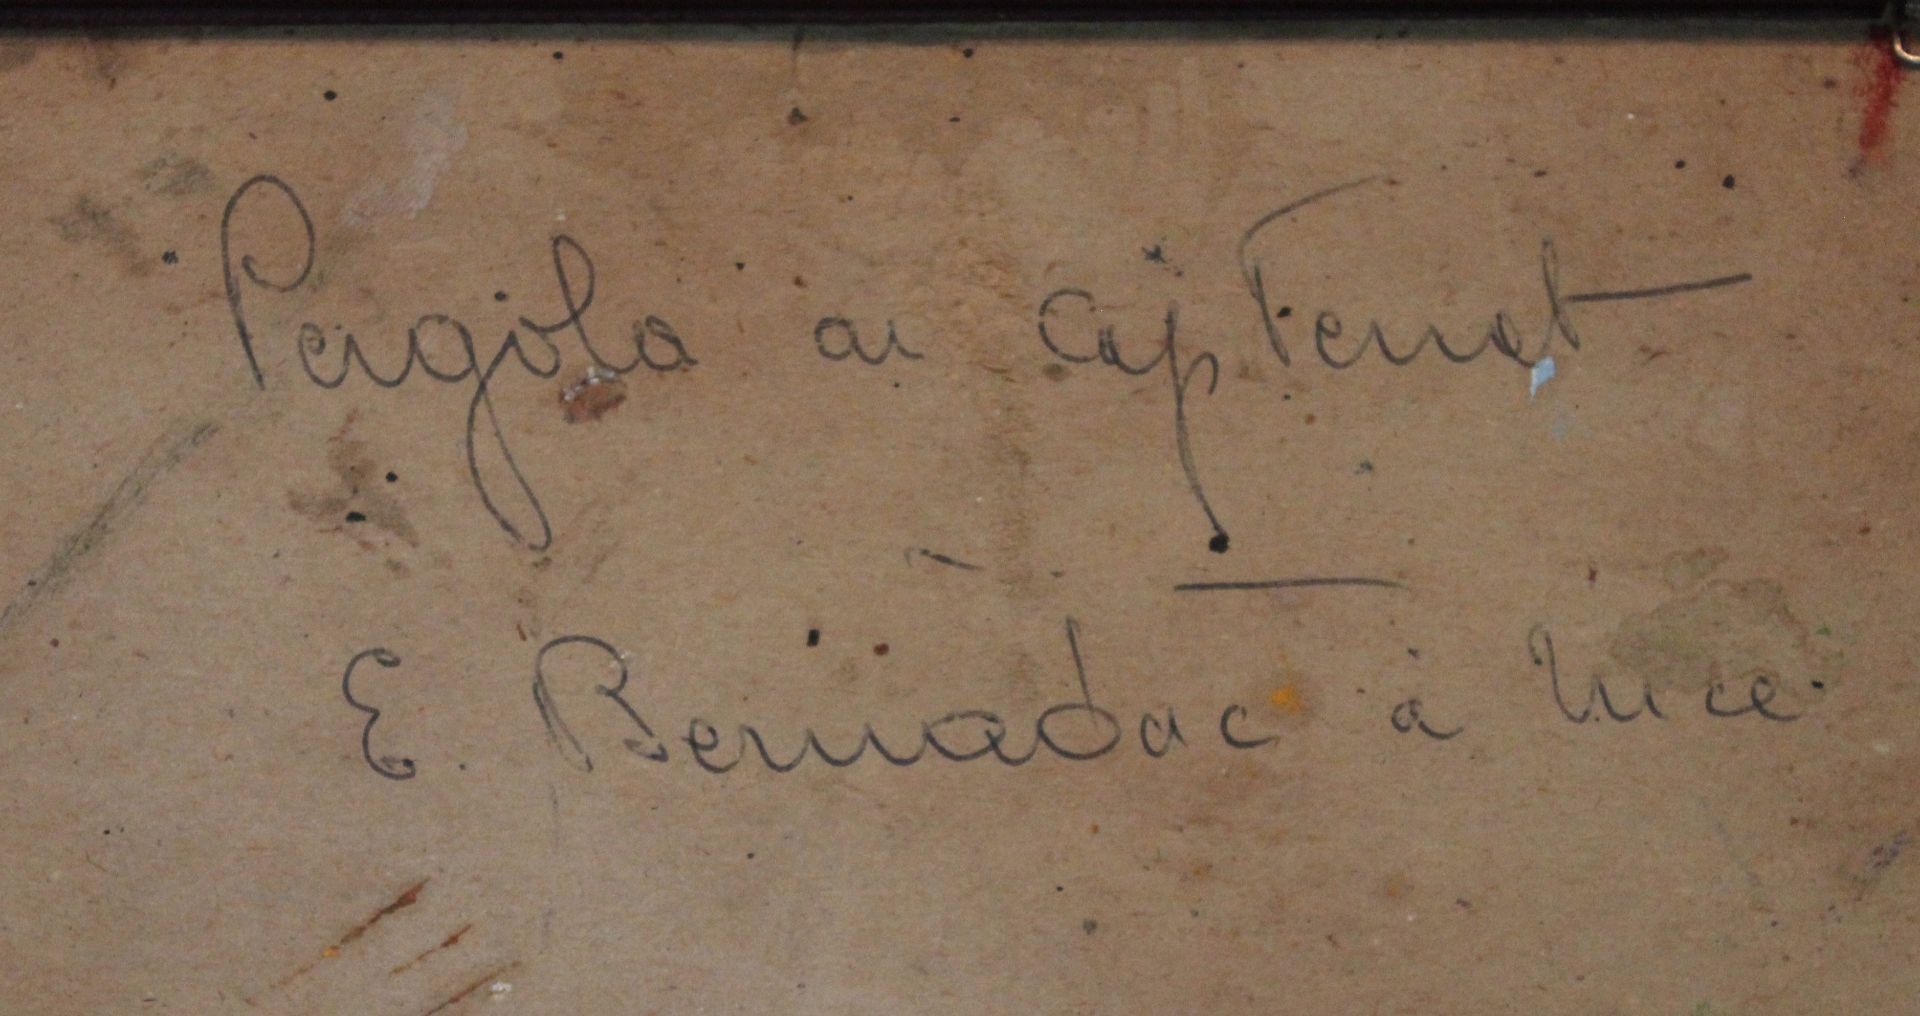 Pergola au cap Ferrat
E. Bernadac à Nice.